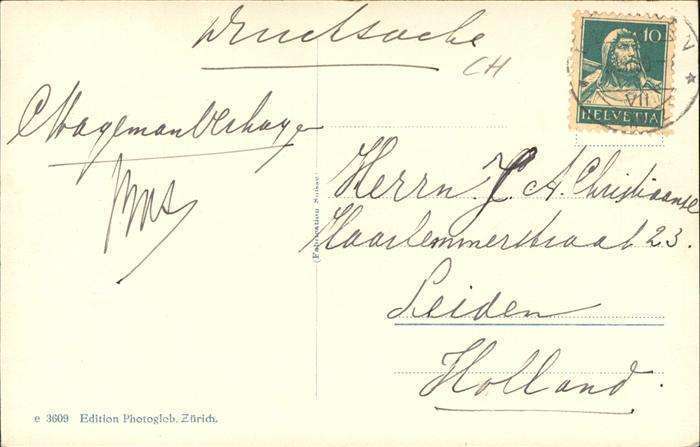 Drucksache
CH
10
HELVETIA
C Wagemanberhage
Herrn J. A. Christiaanse
Haarlemmerstraat 23.
Leiden
Holland.
(Fabrication Suisse)
e 3609 Edition Photoglob. Zürich.